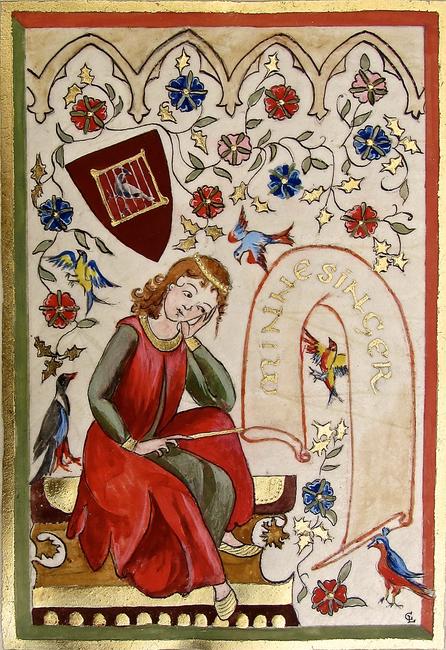 MINNESINGER
CL